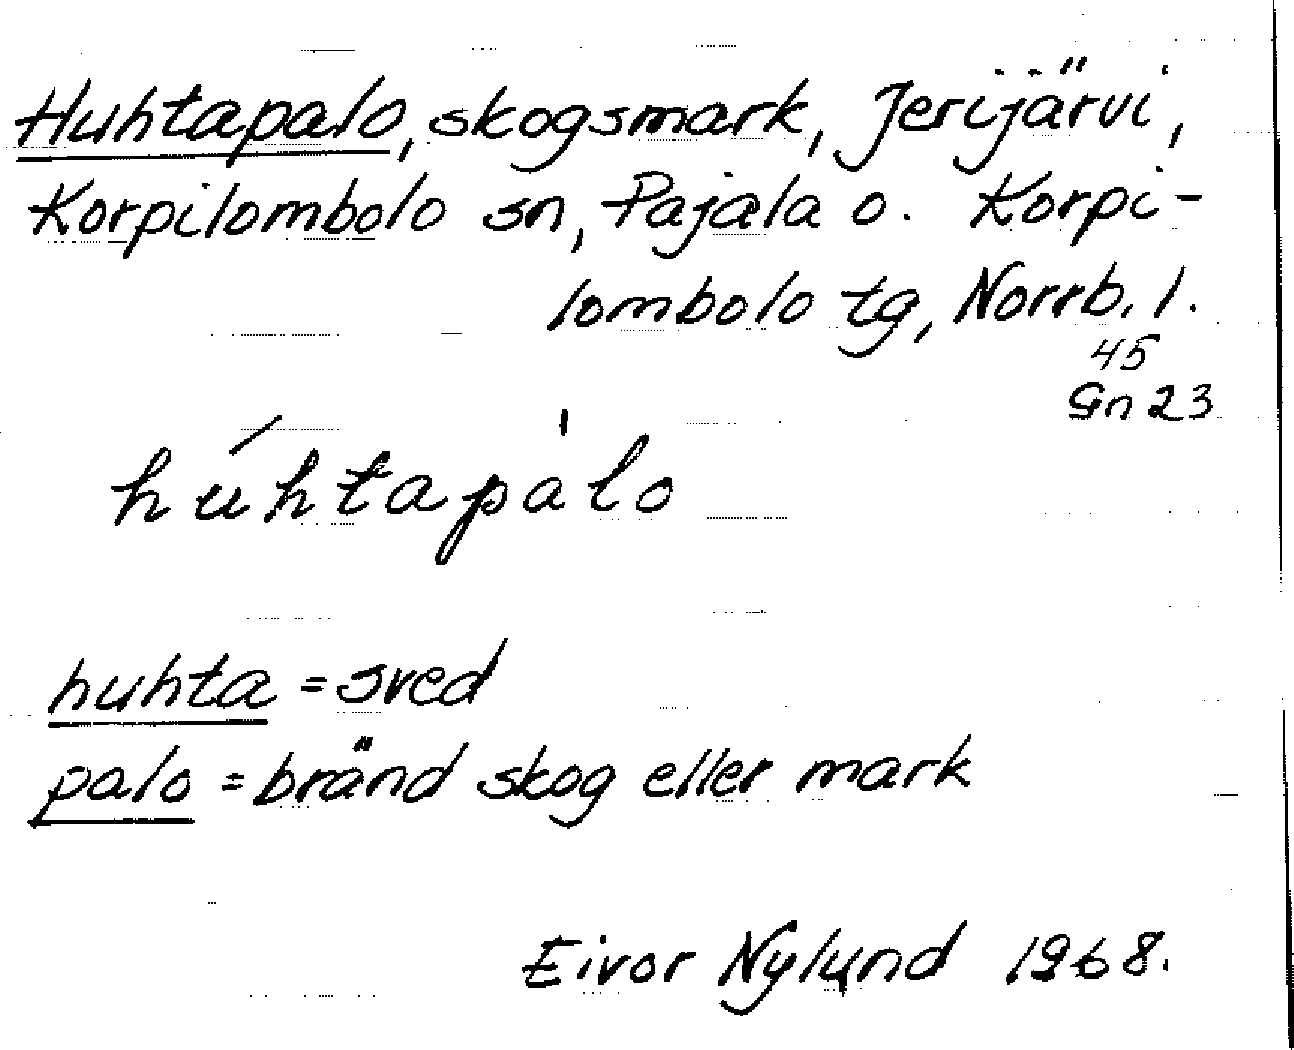 Huhtapalo, skogsmark, Jerijärvi,
Korpilombolo sn, Pajala o. Korpi-
lombolo tg, Norrb. l.
45
Gn 23
húhtapàlo
huhta = sved
palo = bränd skog eller mark
Eivor Nylund 1968.